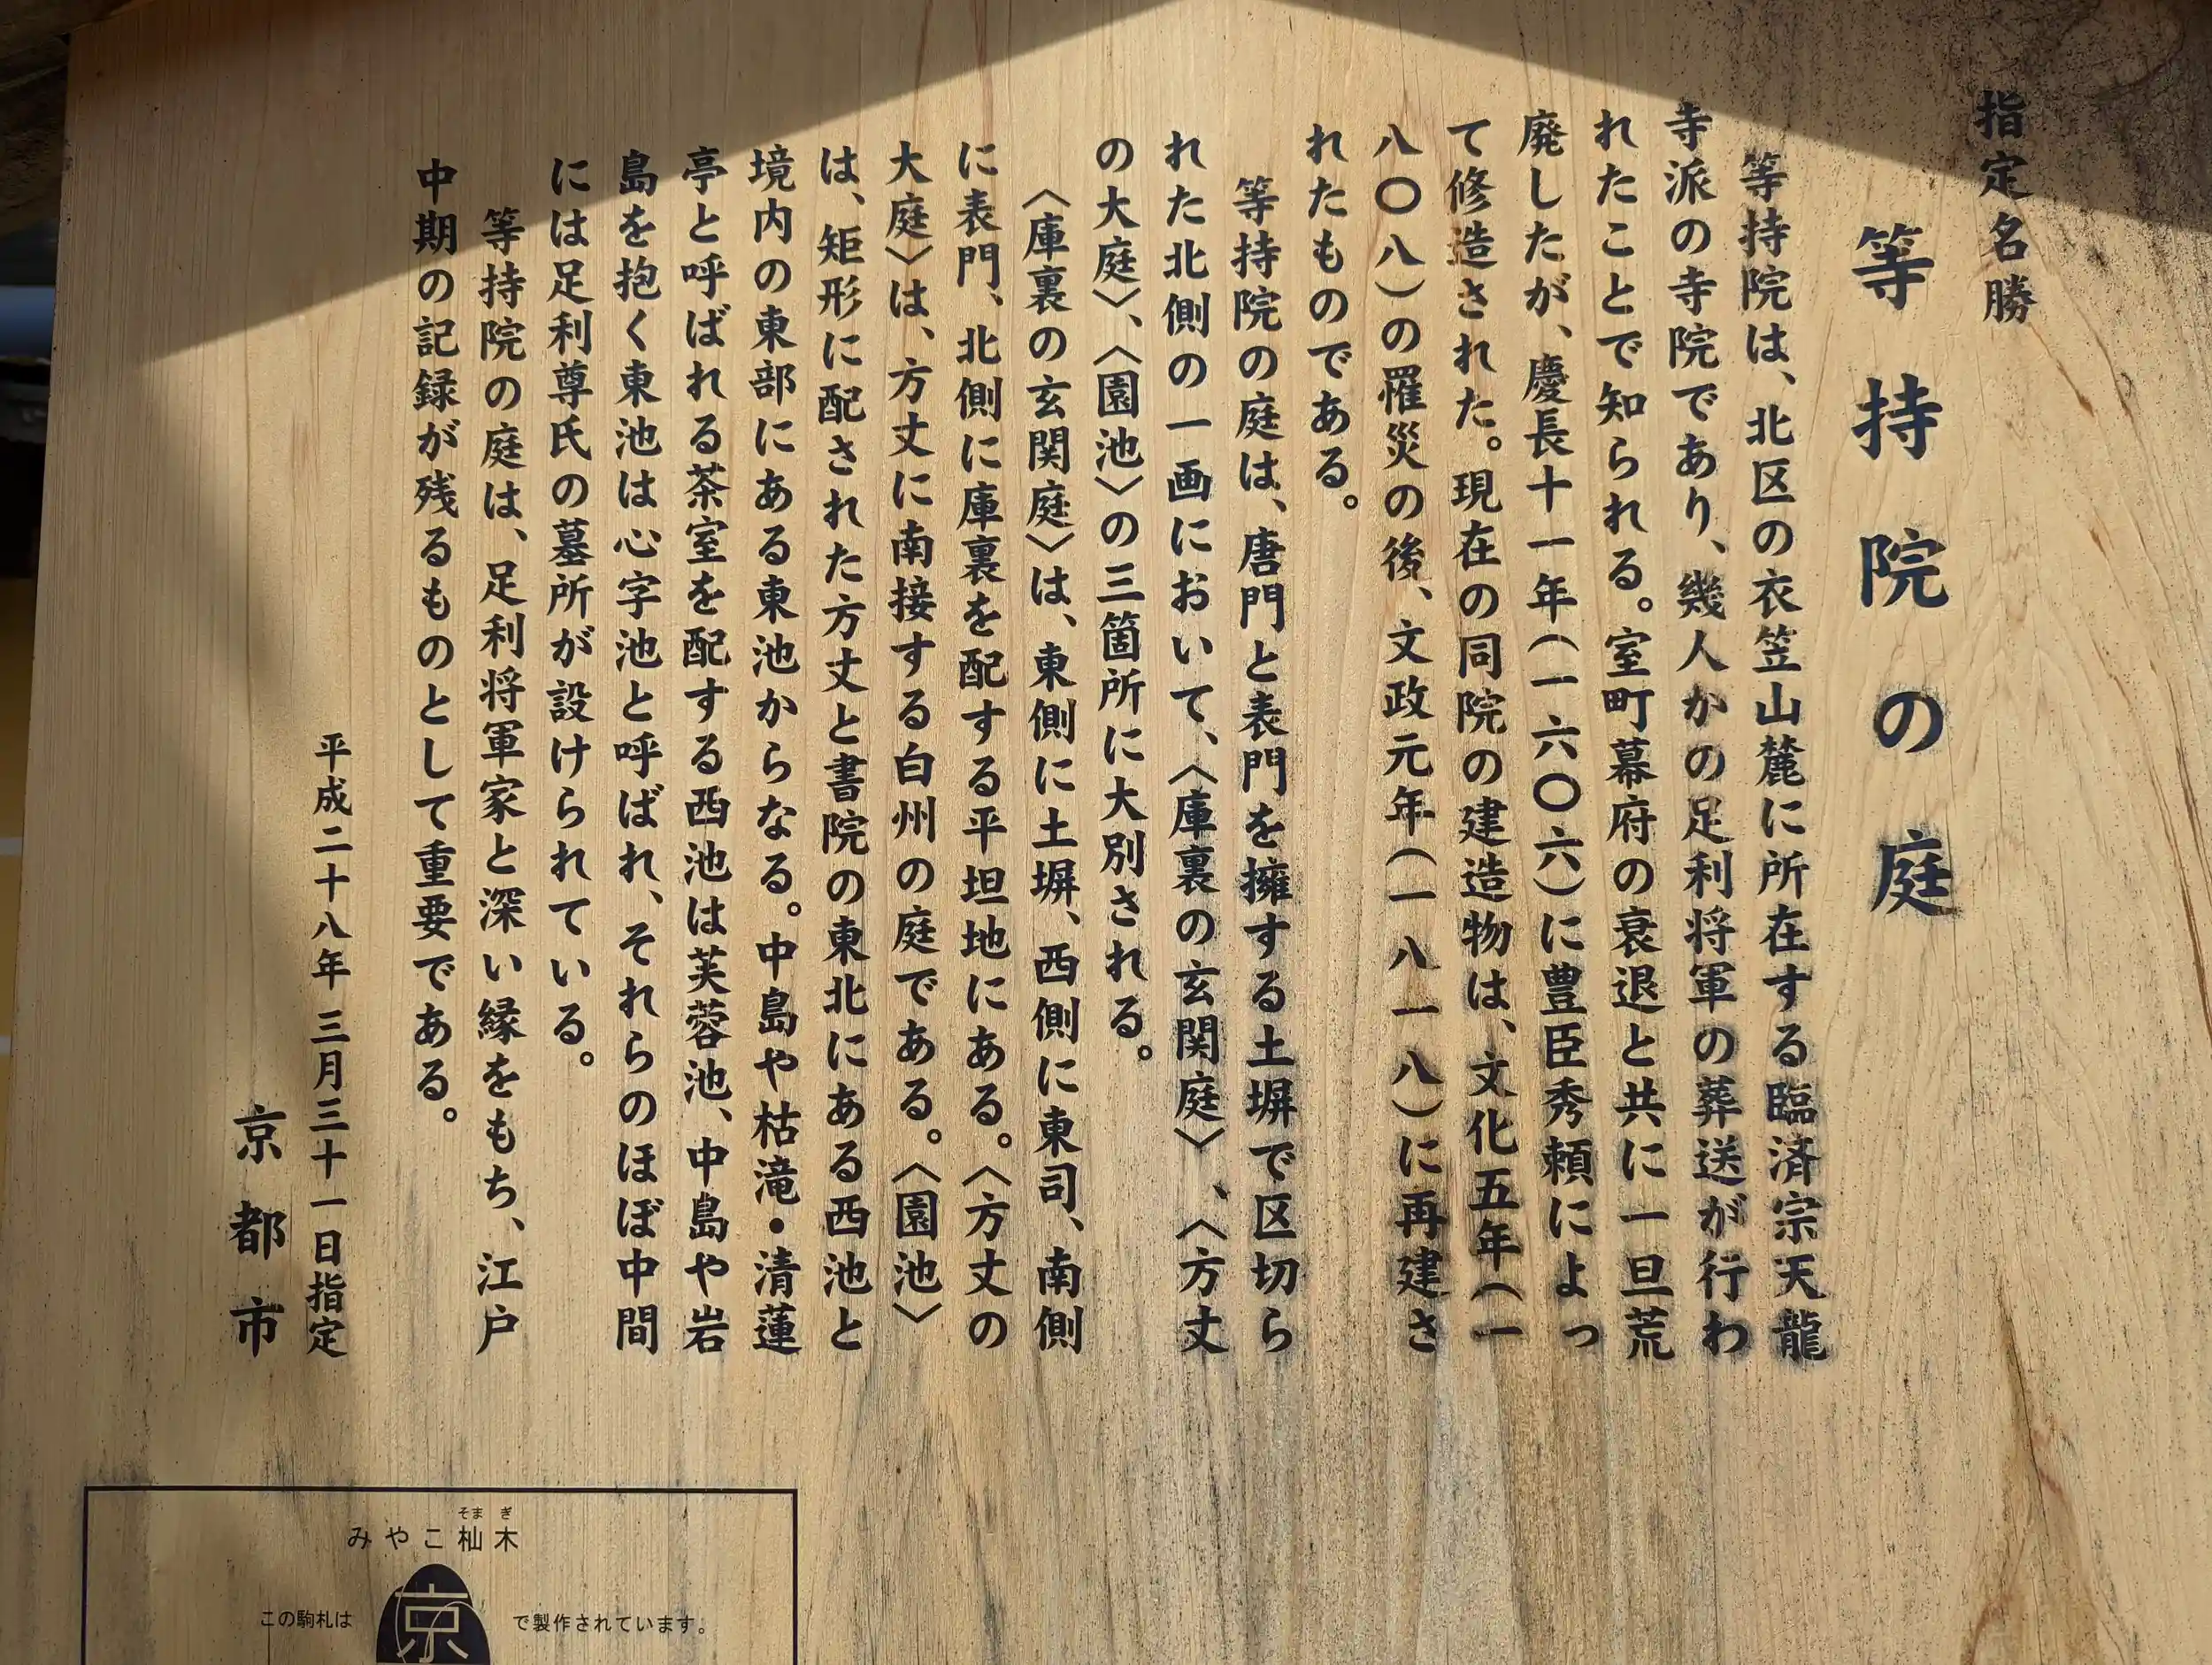 指定名勝
等持院の庭
等持院は、北区の衣笠山麓に所在する臨済宗天龍
寺派の寺院であり、幾人かの足利将軍の葬送が行わ
れたことで知られる。室町幕府の衰退と共に一旦荒
廃したが、慶長十一年(一六〇六)に豊臣秀頼によっ
て修造された。現在の同院の建造物は、文化五年(一
八〇八)の罹災の後、文政元年(一八一八)に再建さ
れたものである。
等持院の庭は、唐門と表門を擁する土塀で区切ら
れた北側の一画において、〈庫裏の玄関庭〉、〈方丈
の大庭〉、〈園池〉の三箇所に大別される。
〈庫裏の玄関庭〉は、東側に土塀、西側に東司、南側
に表門、北側に庫裏を配する平坦地にある。〈方丈の
大庭〉は、方丈に南接する白州の庭である。〈園池〉
は、矩形に配された方丈と書院の東北にある西池と
境内の東部にある東池からなる。中島や枯滝・清蓮
亭と呼ばれる茶室を配する西池は芙蓉池、中島や岩
島を抱く東池は心字池と呼ばれ、それらのほぼ中間
には足利尊氏の墓所が設けられている。
等持院の庭は、足利将軍家と深い縁をもち、江戸
中期の記録が残るものとして重要である。
平成二十八年 三月三十一日指定
京都市
そま ぎ
みやこ杣木
この駒札は 京 で製作されています。